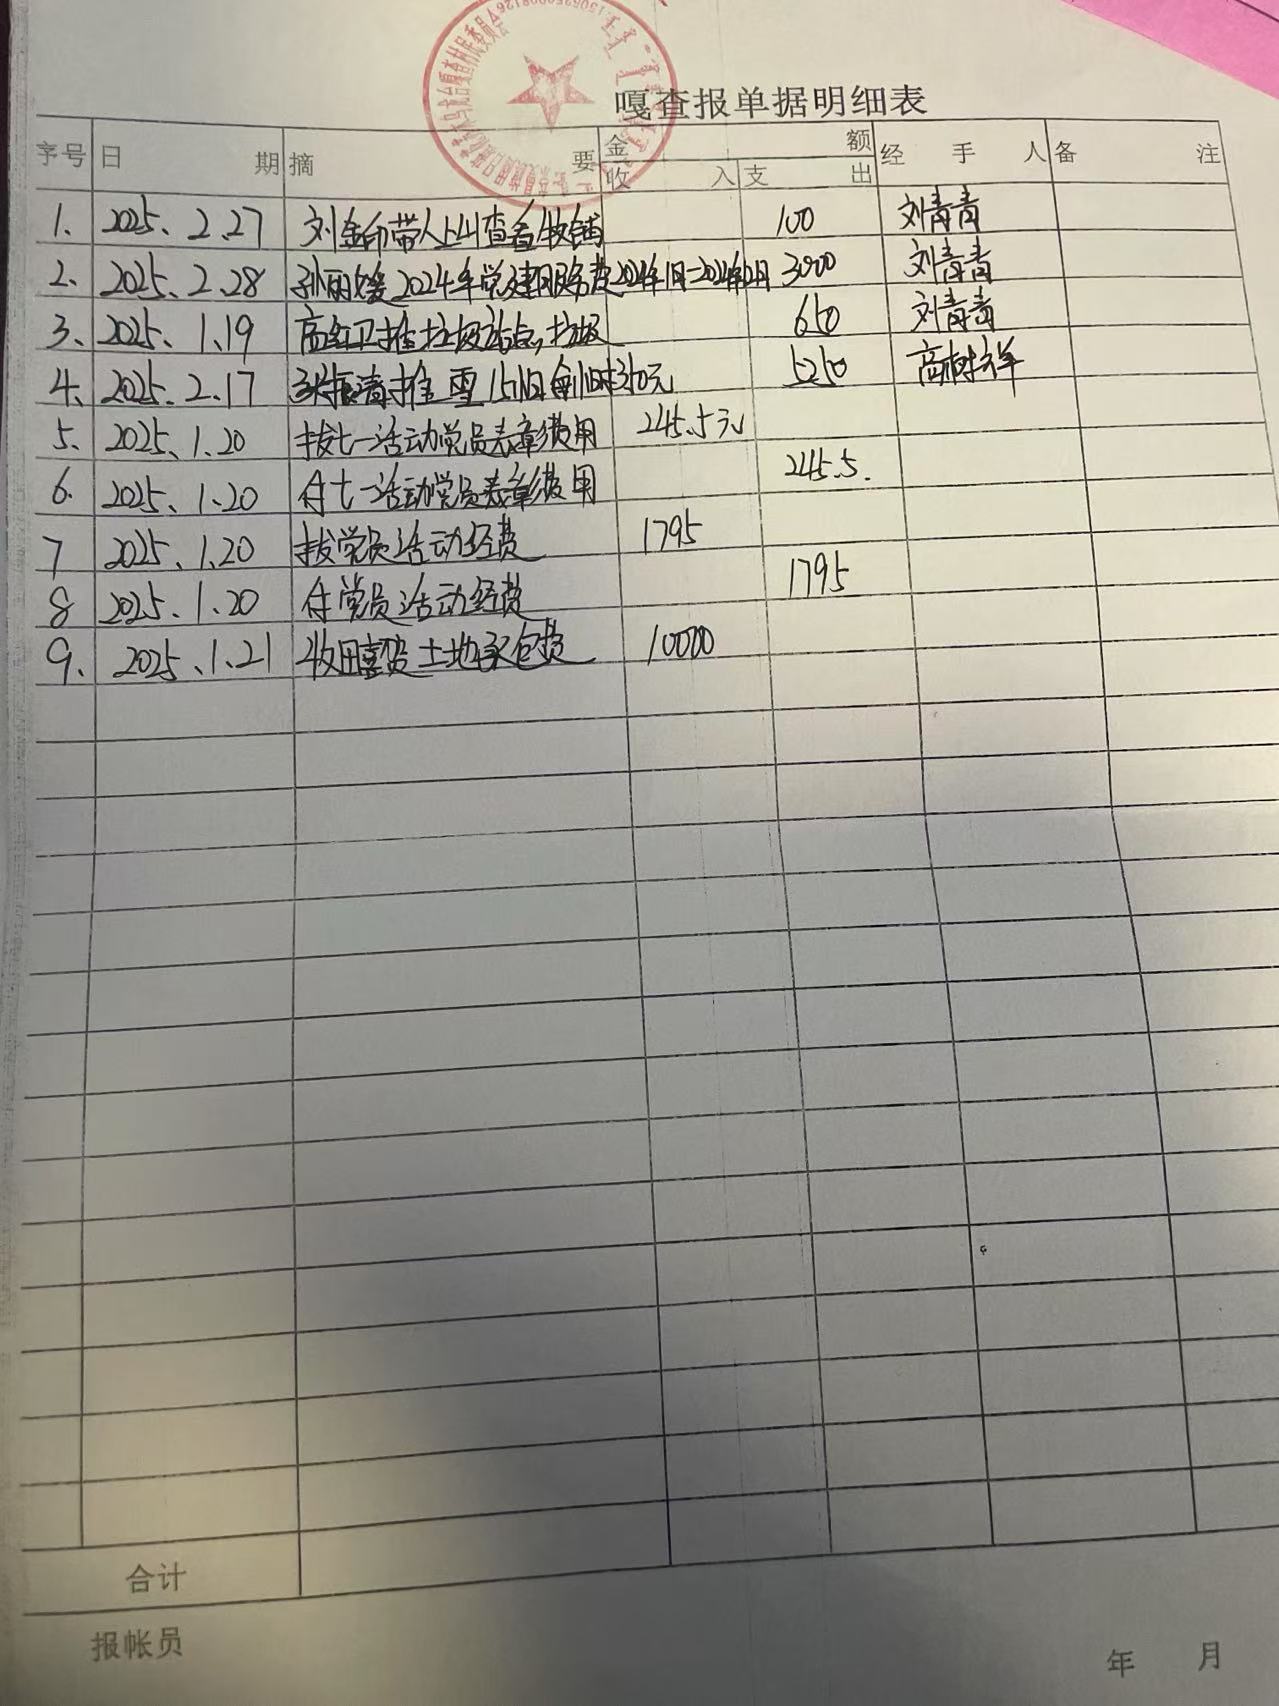 嘎查报单据明细表
序号 日期 摘要 金额 经手人 备注
收入 支出
1. 2025.2.27 刘金印带人上山查看牧铺 100 刘青青
2. 2025.2.28 孙丽媛2024年党建服务费2024年1月-2024年12月 3000 刘青青
3. 2025.1.19 高红卫推垃圾站点,垃圾 650 刘青青
4. 2025.2.17 张振清推雪15小时每小时350元 5250 高树祥
5. 2025.1.20 拨七一活动党员表彰费用 245.5元
6. 2025.1.20 付七一活动党员表彰费用 245.5.
7 2025.1.20 拨党员活动经费 1795
8 2025.1.20 付党员活动经费 1795
9. 2025.1.21 收田喜 土地承包费 10000
合计
报帐员
年 月